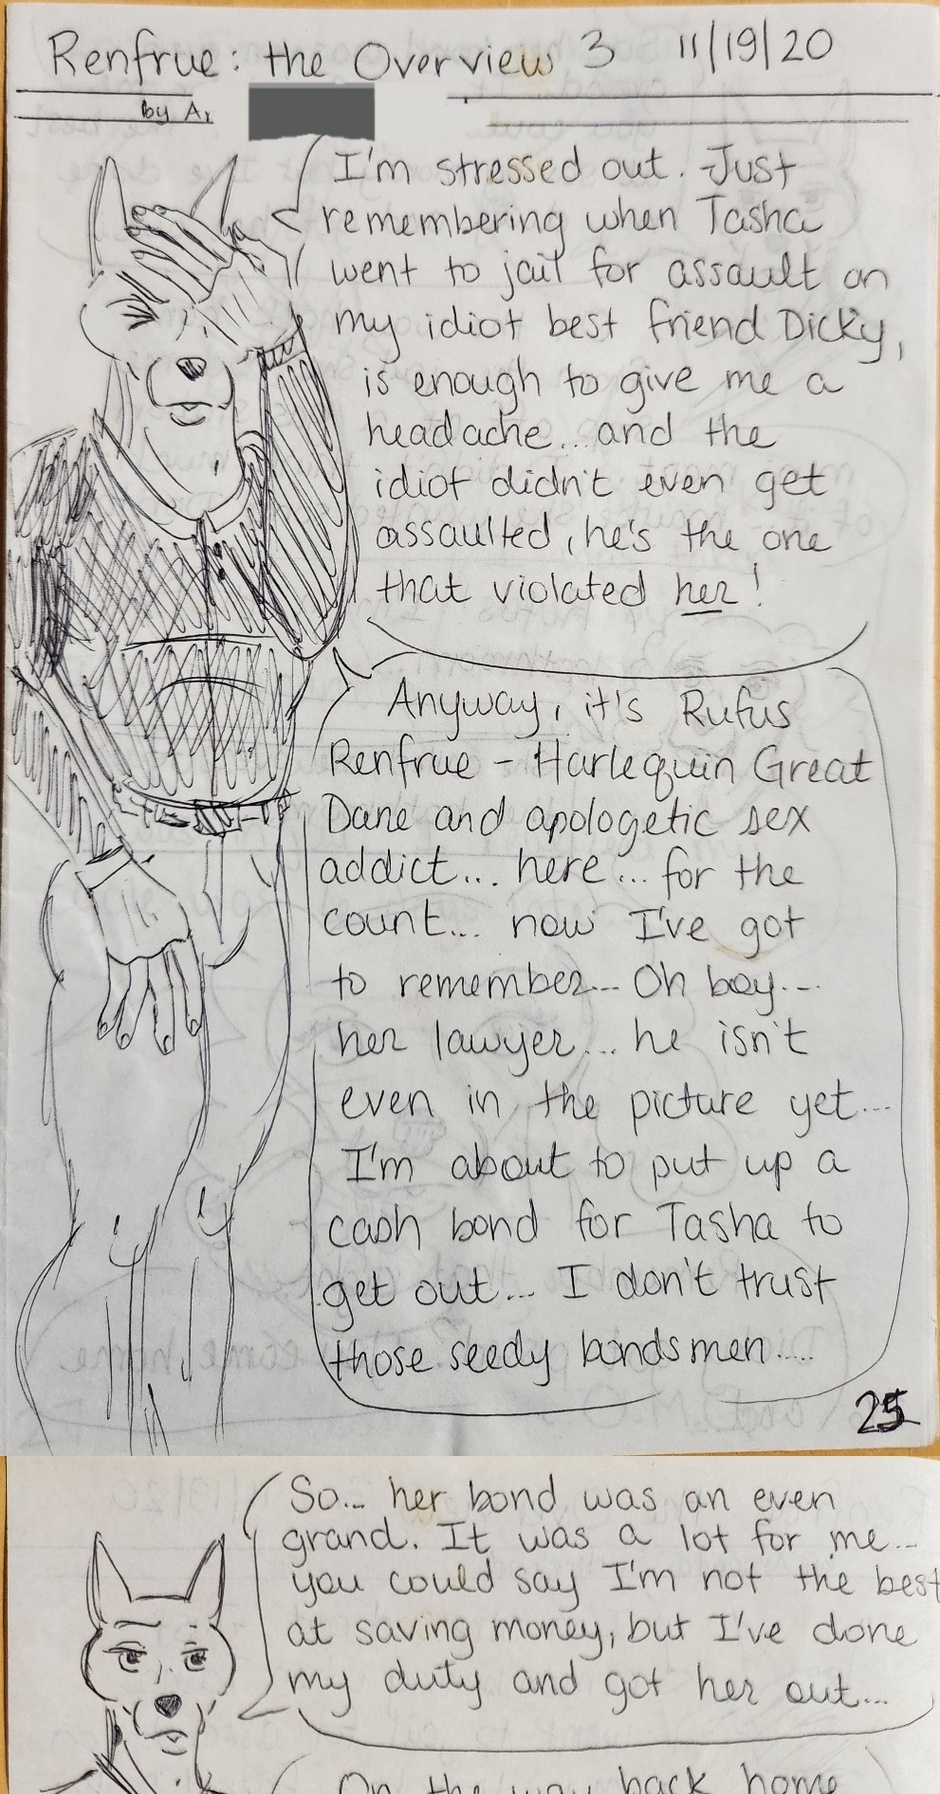 Renfrue: the Overview 3 11/19/20
by A
I'm stressed out. Just
remembering when Tasha
went to jail for assault on
my idiot best friend Dicky,
is enough to give me a
headache... and the
idiot didn't even get
assaulted, he's the one
that violated her!
Anyway, it's Rufus
Renfrue - Harlequin Great
Dane and apologetic sex
addict... here... for the
count... now I've got
to remember... Oh boy...
her lawyer... he isn't
even in the picture yet...
I'm about to put up a
cash bond for Tasha to
get out... I don't trust
those seedy bondsmen....
25
So... her bond was an even
grand. It was a lot for me...
you could say I'm not the best
at saving money, but I've done
my duty and got her out...
On the way back home